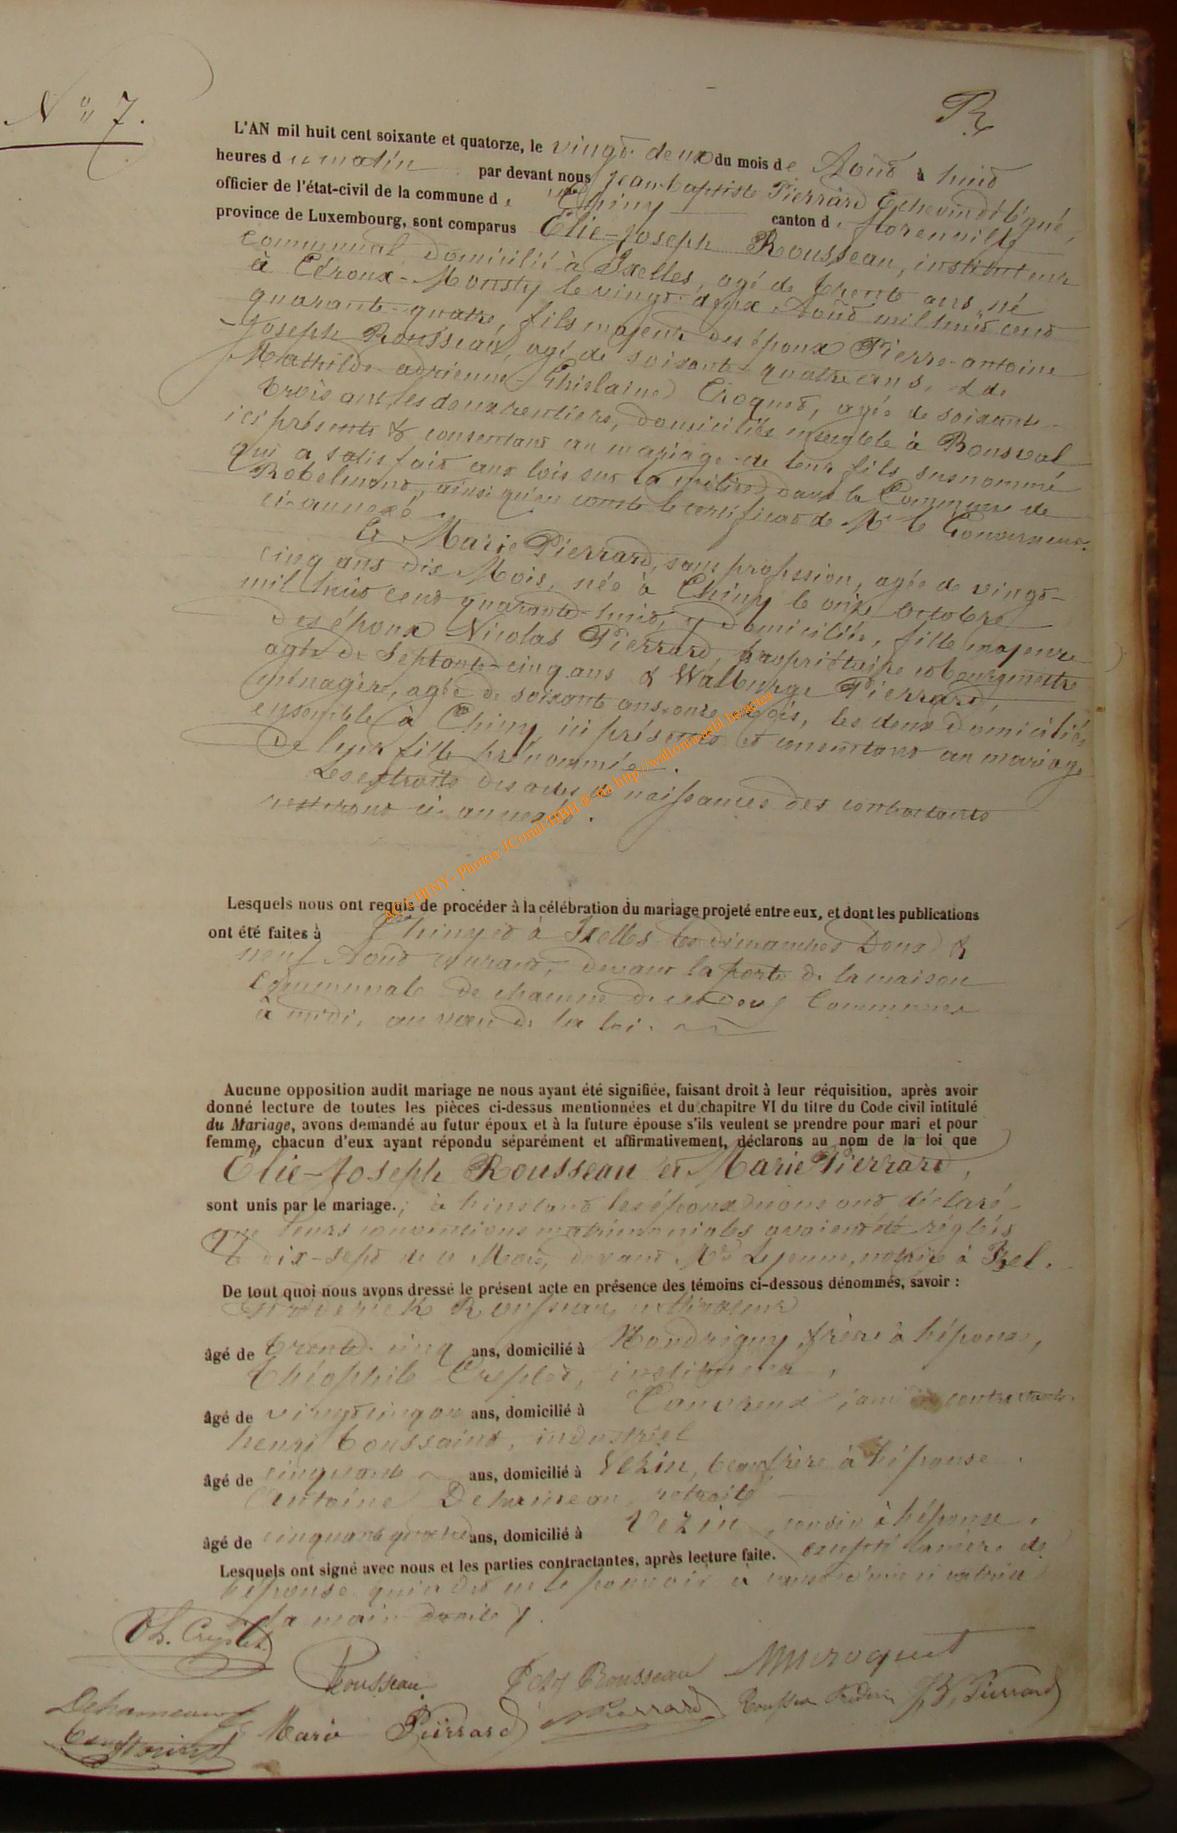 N° 7.
R
L'AN mil huit cent soixante et quatorze, le vingt deux du mois de Août à huit
heures du matin par devant nous Jean-baptiste Pierrard Echevin délégué,
officier de l'état-civil de la commune de Chiny canton de florenville
province de Luxembourg, sont comparus Elie-Joseph Rousseau, instituteur
communal, domicilié à Ixelles, agé de trente ans, né
à Céroux-Mousty le vingt-deux Août mil huit cent
quarante-quatre, fils majeur des époux Pierre-antoine
Joseph Rousseau, agé de soixante-quatre ans, & de
Mathilde-adrienne-Ghislaine Croquet, agée de soixante-
trois ans les deux rentiers, domiciliés ensemble à Bousval
ici présents & consentant au mariage de leur fils susnommé
qui a satisfait aux lois sur la milice dans la Commune de
ainsi qu'en conste le certificat de Mr le Gouverneur
ci-annexé
Et Marie Pierrard, sans profession, agée de vingt-
cinq ans dix Mois, née à Chiny le onze Octobre
mil huit cent quarante-huit, y domiciliée, fille majeure
des époux Nicolas Pierrard, propriétaire et bourgmestre
agé de Septante-cinq ans & Walburge Pierrard,
ménagère, agée de soixante ans onze mois, les deux domiciliés
ensemble à Chiny, ici présents et consentant au mariage
de leur fille prénommée.
Les extraits des actes de naissances des contractants
resteront ci-annexés.
Lesquels nous ont requis de procéder à la célébration du mariage projeté entre eux, et dont les publications
ont été faites à Chiny et à Ixelles les dimanches Deux &
neuf Août courant, devant la porte de la maison
Communale de chacune de ces deux Communes
à midi, au vœu de la loi.
Aucune opposition audit mariage ne nous ayant été signifiée, faisant droit à leur réquisition, après avoir
donné lecture de toutes les pièces ci-dessus mentionnées et du chapitre VI du titre du Code civil intitulé
du Mariage, avons demandé au futur époux et à la future épouse s'ils veulent se prendre pour mari et pour
femme, chacun d'eux ayant répondu séparément et affirmativement, déclarons au nom de la loi que
Elie-Joseph Rousseau et Marie Pierrard,
sont unis par le mariage.; à l'instant les époux nous ont déclaré
que leurs conventions matrimoniales avaient été réglées
le dix-sept de ce Mois, devant Me Lejeune, notaire à Izel.
De tout quoi nous avons dressé le présent acte en présence des témoins ci-dessous dénommés, savoir :
Frédérick Rousseau,
âgé de trente-cinq ans, domicilié à frère à l'époux,
Théophile Crespler, instituteur,
âgé de vingt cinq ans, domicilié à ami des contractants
henri toussaint, industriel
âgé de cinquante ans, domicilié à Vezin, beaufrère à l'épouse.
Antoine Dehameau, retraité
âgé de cinquante quatre ans, domicilié à Vezin, cousin à l'épouse.
Lesquels ont signé avec nous et les parties contractantes, après lecture faite. excepté la mère de
l'épouse qui a dit ne le pouvoir à cause
la main droite.
Rousseau
Rousseau
MM Croquet
Dehameau
Marie Pierrard
N Pierrard
Rousseau Frédérick
J B Pierrard